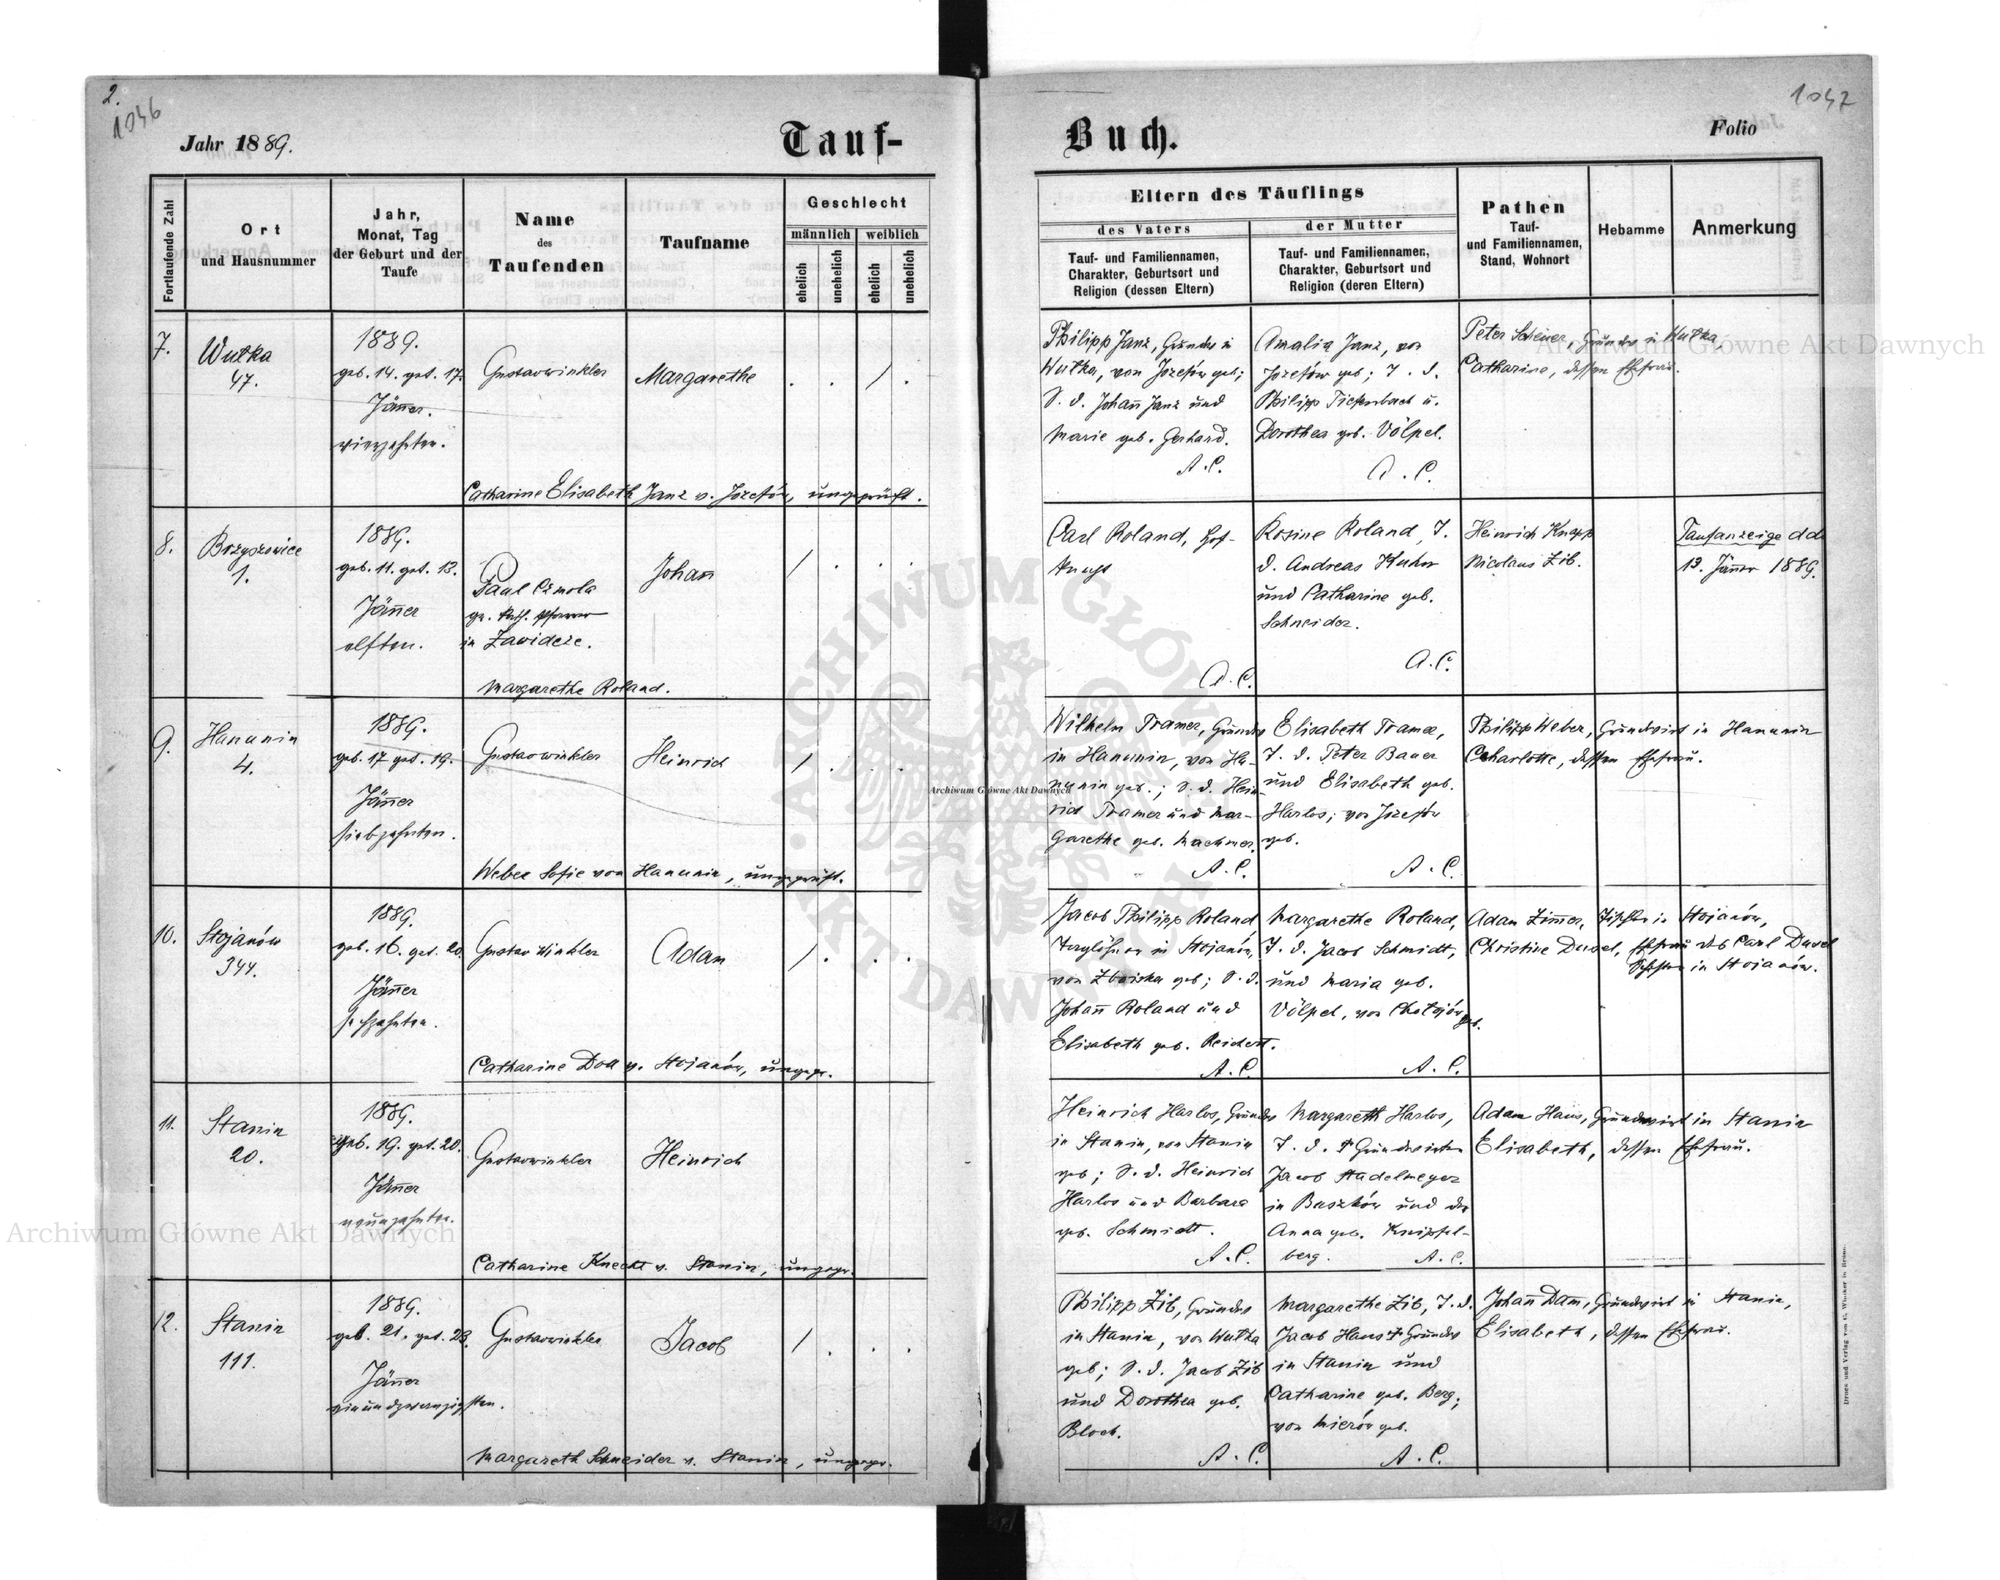 2.
1046
Jahr 1889.
Tauf-
Fortlaufende Zahl
Ort
und Hausnummer
Jahr,
Monat, Tag
der Geburt und der
Taufe
Name
des
Taufenden
Taufname
Geschlecht
männlich
weiblich
ehelich
unehelich
ehelich
unehelich
7.
Wutka
47.
1889.
geb. 14. get. 17.
Jänner.
vierzehnten.
Gustav Winkler
Margarethe
. . / .
Catharine Elisabeth Janz v. Józefów, ungeprüft.
8.
Brzyszowice
1.
1889.
geb. 11. get. 13.
Jänner
elften.
Paul
gr. kath. Pfarrer
in Zawidcze.
Johann
/ . . .
Margarethe Roland.
9.
Hanunin
4.
1889.
geb. 17 get. 19.
Jänner
siebzehnten.
Gustav Winkler
Heinrich
/ . . .
Weber Sofie von Hanunin, ungeprüft.
10.
Stojanów
344.
1889.
geb. 16. get. 20.
Jänner
sechzehnten.
Gustav Winkler
Adam
/ . . .
Catharine Doll v. Stojanów, ungepr.
11.
Stanin
20.
1889.
geb. 19. get. 20.
Jänner
neunzehnten.
Gustav Winkler
Heinrich
Catharine Knecht v. Stanin, ungepr.
12.
Stanin
111.
1889.
geb. 21. get. 23.
Jänner
einundzwanzigsten.
Gustav Winkler
Jacob
/ . . .
Margareth Schneider v. Stanin, ungepr.
1047
Buch.
Folio
Eltern des Täuflings
des Vaters
Tauf- und Familiennamen,
Charakter, Geburtsort und
Religion (dessen Eltern)
der Mutter
Tauf- und Familiennamen,
Charakter, Geburtsort und
Religion (deren Eltern)
Pathen
Tauf-
und Familiennamen,
Stand, Wohnort
Hebamme
Anmerkung
Philipp Janz, Grundw in
Wutka, von Józefów geb;
S. d. Johann Janz und
Marie geb. Gerhard.
A. C.
Amalia Janz, von
Józefów geb; T. d.
Philipp Tiefenbach u.
Dorothea geb. Völpel.
A. C.
Peter Scheuer, Grundw in Wutka,
Catharine, dessen Ehefrau.
Carl Roland, Hof-
knecht
A. C.
Rosine Roland, T.
d. Andreas Kuhn
und Catharine geb.
Schneider.
A. C.
Heinrich Knapp
Nicolaus Zib.
Taufanzeige dd
13. Jänner 1889.
Wilhelm Tramer, Grundw
in Hanunin, von Ha-
nunin geb.; S. d. Hein-
rich Tramer und Mar-
garethe geb. Machmer.
A. C.
Elisabeth Tramer,
T. d. Peter Bauer
und Elisabeth geb.
Harlos; von Józefów
geb.
A. C.
Philipp Weber, Grundwirt in Hanunin
Charlotte, dessen Ehefrau.
Jacob Philipp Roland,
Taglöhner in Stojanów,
von Zboiska geb; S. d.
Johann Roland und
Elisabeth geb. Reichert.
A. C.
Margarethe Roland,
T. d. Jacob Schmidt,
und Maria geb.
Völpel, von geb.
A. C.
Adam Zimmer, Tischler in Stojanów,
Christine Dusel, Ehefrau des Carl Dusel
in Stojanów.
Heinrich Harlos, Grundw
in Stanin, von Stanin
geb; S. d. Heinrich
Harlos und Barbara
geb. Schmidt.
A. C.
Margareth Harlos,
T. d. † Grundwirten
Jacob Stadelmeyer
in Buszków und der
Anna geb. Knipfel-
berg.
A. C.
Adam Haus, Grundwirt in Stanin
Elisabeth, dessen Ehefrau.
Philipp Zib, Grundw
in Stanin, von Wutka
geb; S. d. Jacob Zib
und Dorothea geb.
Bloch.
A. C.
Margarethe Zib, T. d.
Jacob Haus † Grundw
in Stanin und
Catharine geb. Berg;
von Mierów geb.
A. C.
Johann Dam, Grundwirt in Stanin,
Elisabeth, dessen Ehefrau.
Druck und Verlag von G. Winiker in Brünn.
Archiwum Główne Akt Dawnych
Archiwum Główne Akt Dawnych
Archiwum Główne Akt Dawnych
ARCHIWUM GŁÓWNE AKT DAWNYCH